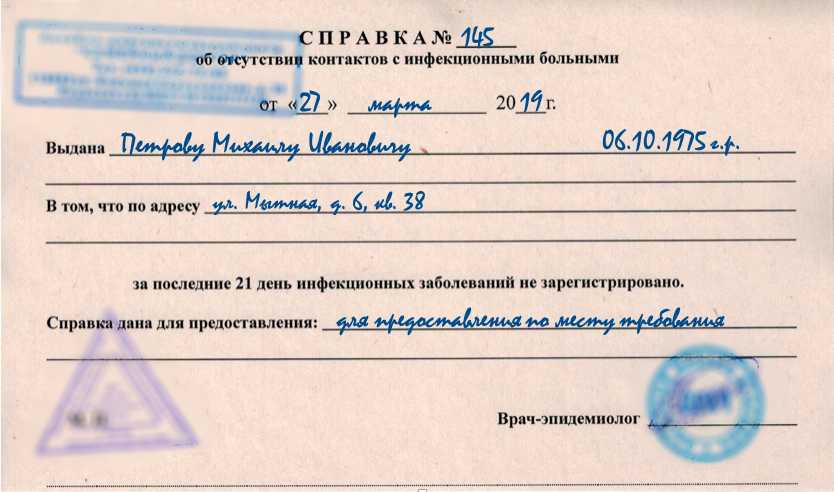 СПРАВКА № 145
об отсутствии контактов с инфекционными больными
от «27» марта 2019г.
Выдана Петрову Михаилу Ивановичу 06.10.1975 г.р.
В том, что по адресу ул. Мытная, д. 6, кв. 38
за последние 21 день инфекционных заболеваний не зарегистрировано.
Справка дана для предоставления: для предоставления по месту требования
Врач-эпидемиолог